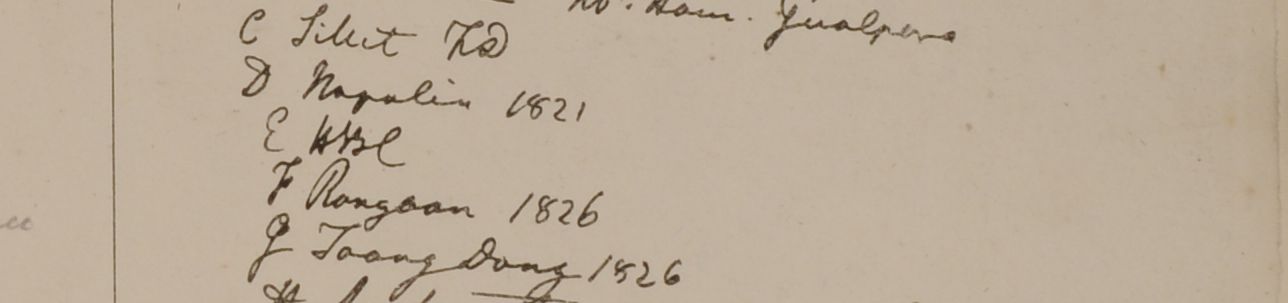 Ham. Gualpara
C Silhet FD
D Napalia 1821
E HBC
F Rangoon 1826
G Toong Dong 1826